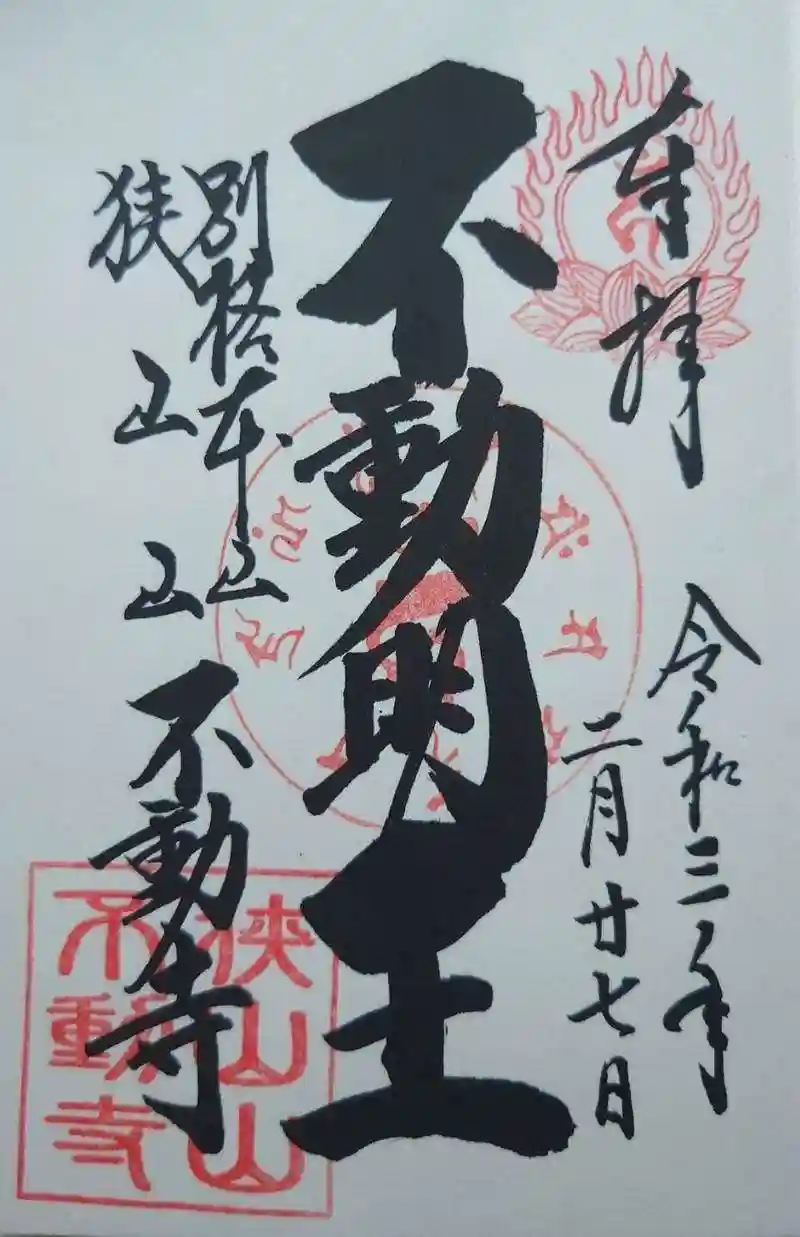 奉拝
令和三年
二月廿七日
不動明王
別格本山
狭山山不動寺
狭山山
不動寺